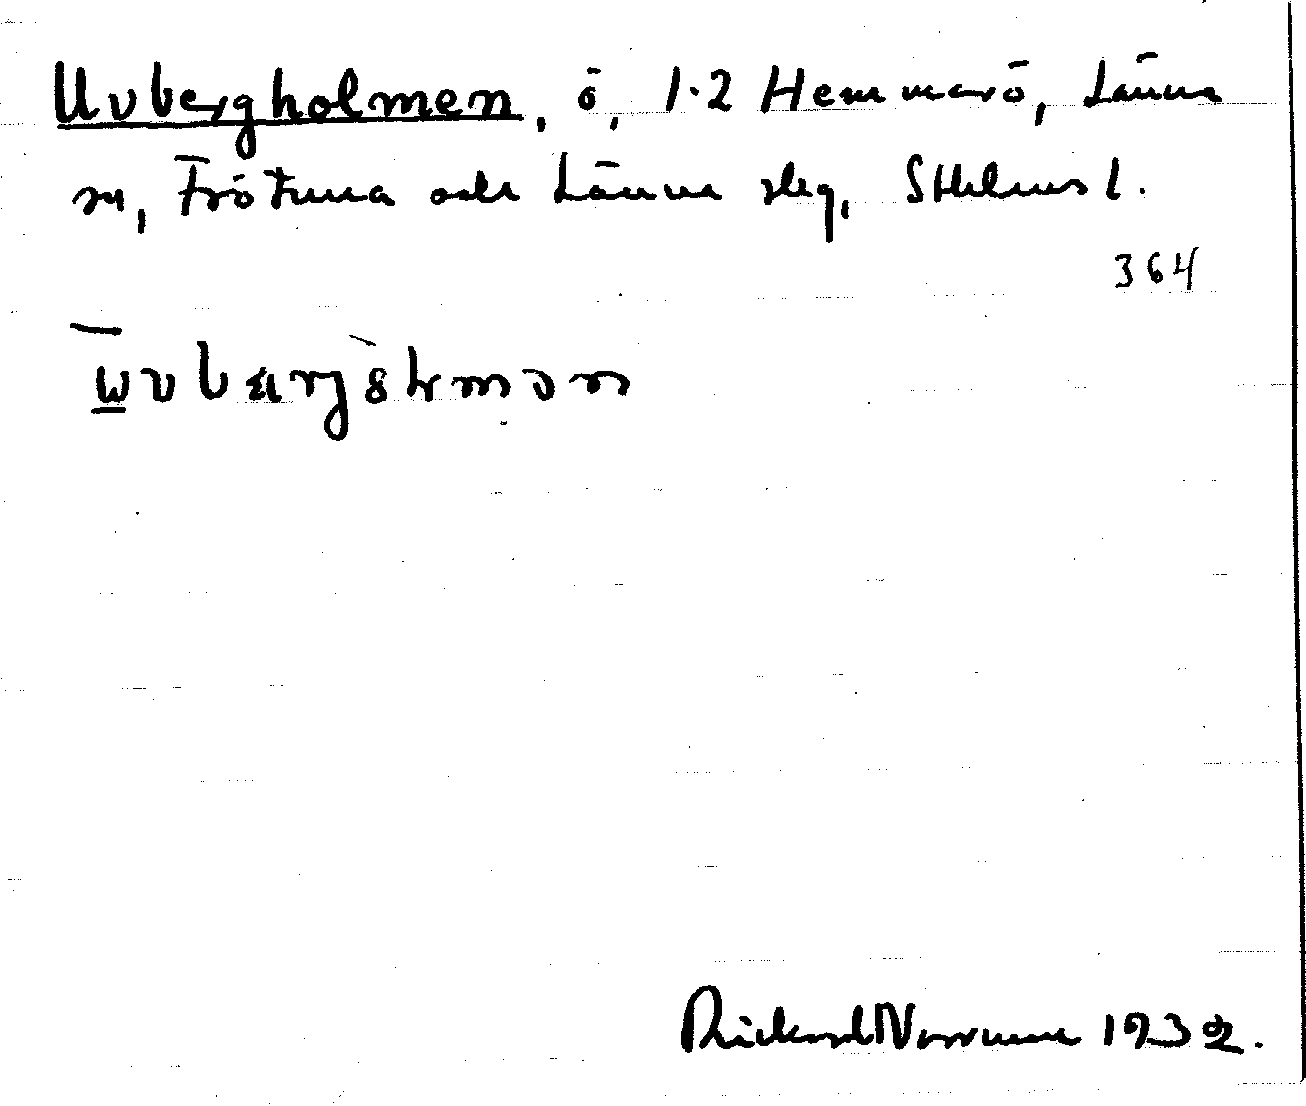 Uvbergholmen, ö, 1·2 Hemmarö, Länna
sn, Frötuna och Länna slg, Sthlms l.
364
Rickard Norrman 1932.